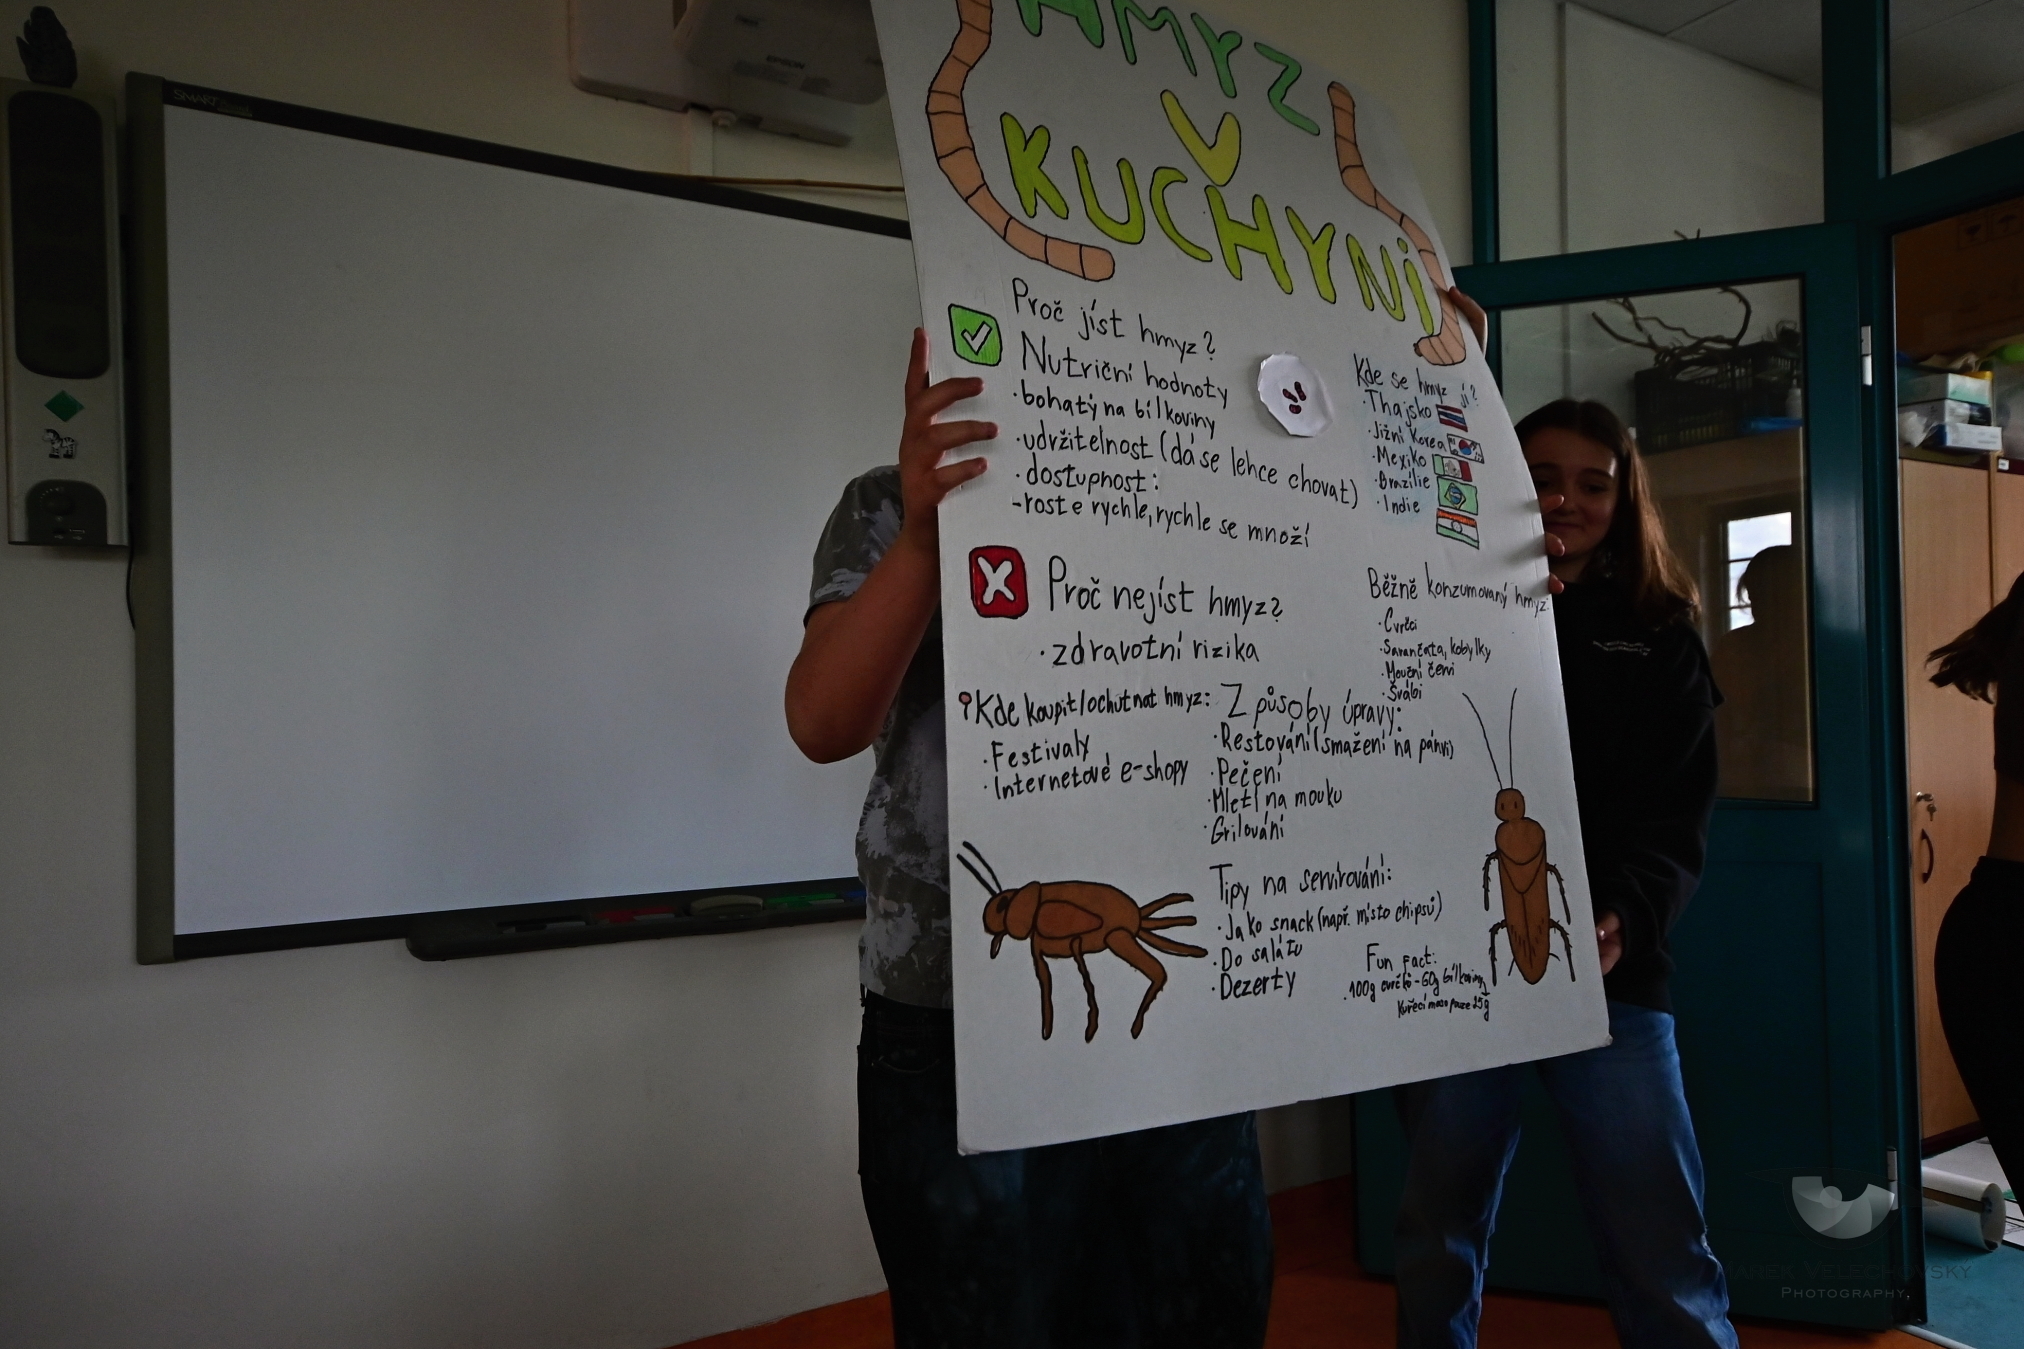 SMART
EPSON
HMYZ
V
KUCHYNI
Proč jíst hmyz?
Nutriční hodnoty
· bohatý na bílkoviny
· udržitelnost (dá se lehce chovat)
· dostupnost:
- roste rychle, rychle se množí
Kde se hmyz jí?
· Thajsko
· Jižní Korea
· Mexiko
· Brazílie
· Indie
Proč nejíst hmyz?
· zdravotní rizika
Běžně konzumovaný hmyz:
· Cvrčci
· Sarančata, kobylky
· Mouční červi
· Švábi
Kde koupit/ochutnat hmyz:
· Festivaly
· Internetové e-shopy
Způsoby úpravy:
· Restování (smažení na pánvi)
· Pečení
· Mletí na mouku
· Grilování
Tipy na servírování:
· Jako snack (např. místo chipsů)
· Do salátu
· Dezerty
Fun fact:
· 100g cvrčků - 60g bílkoviny
Kuřecí maso pouze 25g
Marek Velechovsky
Photography